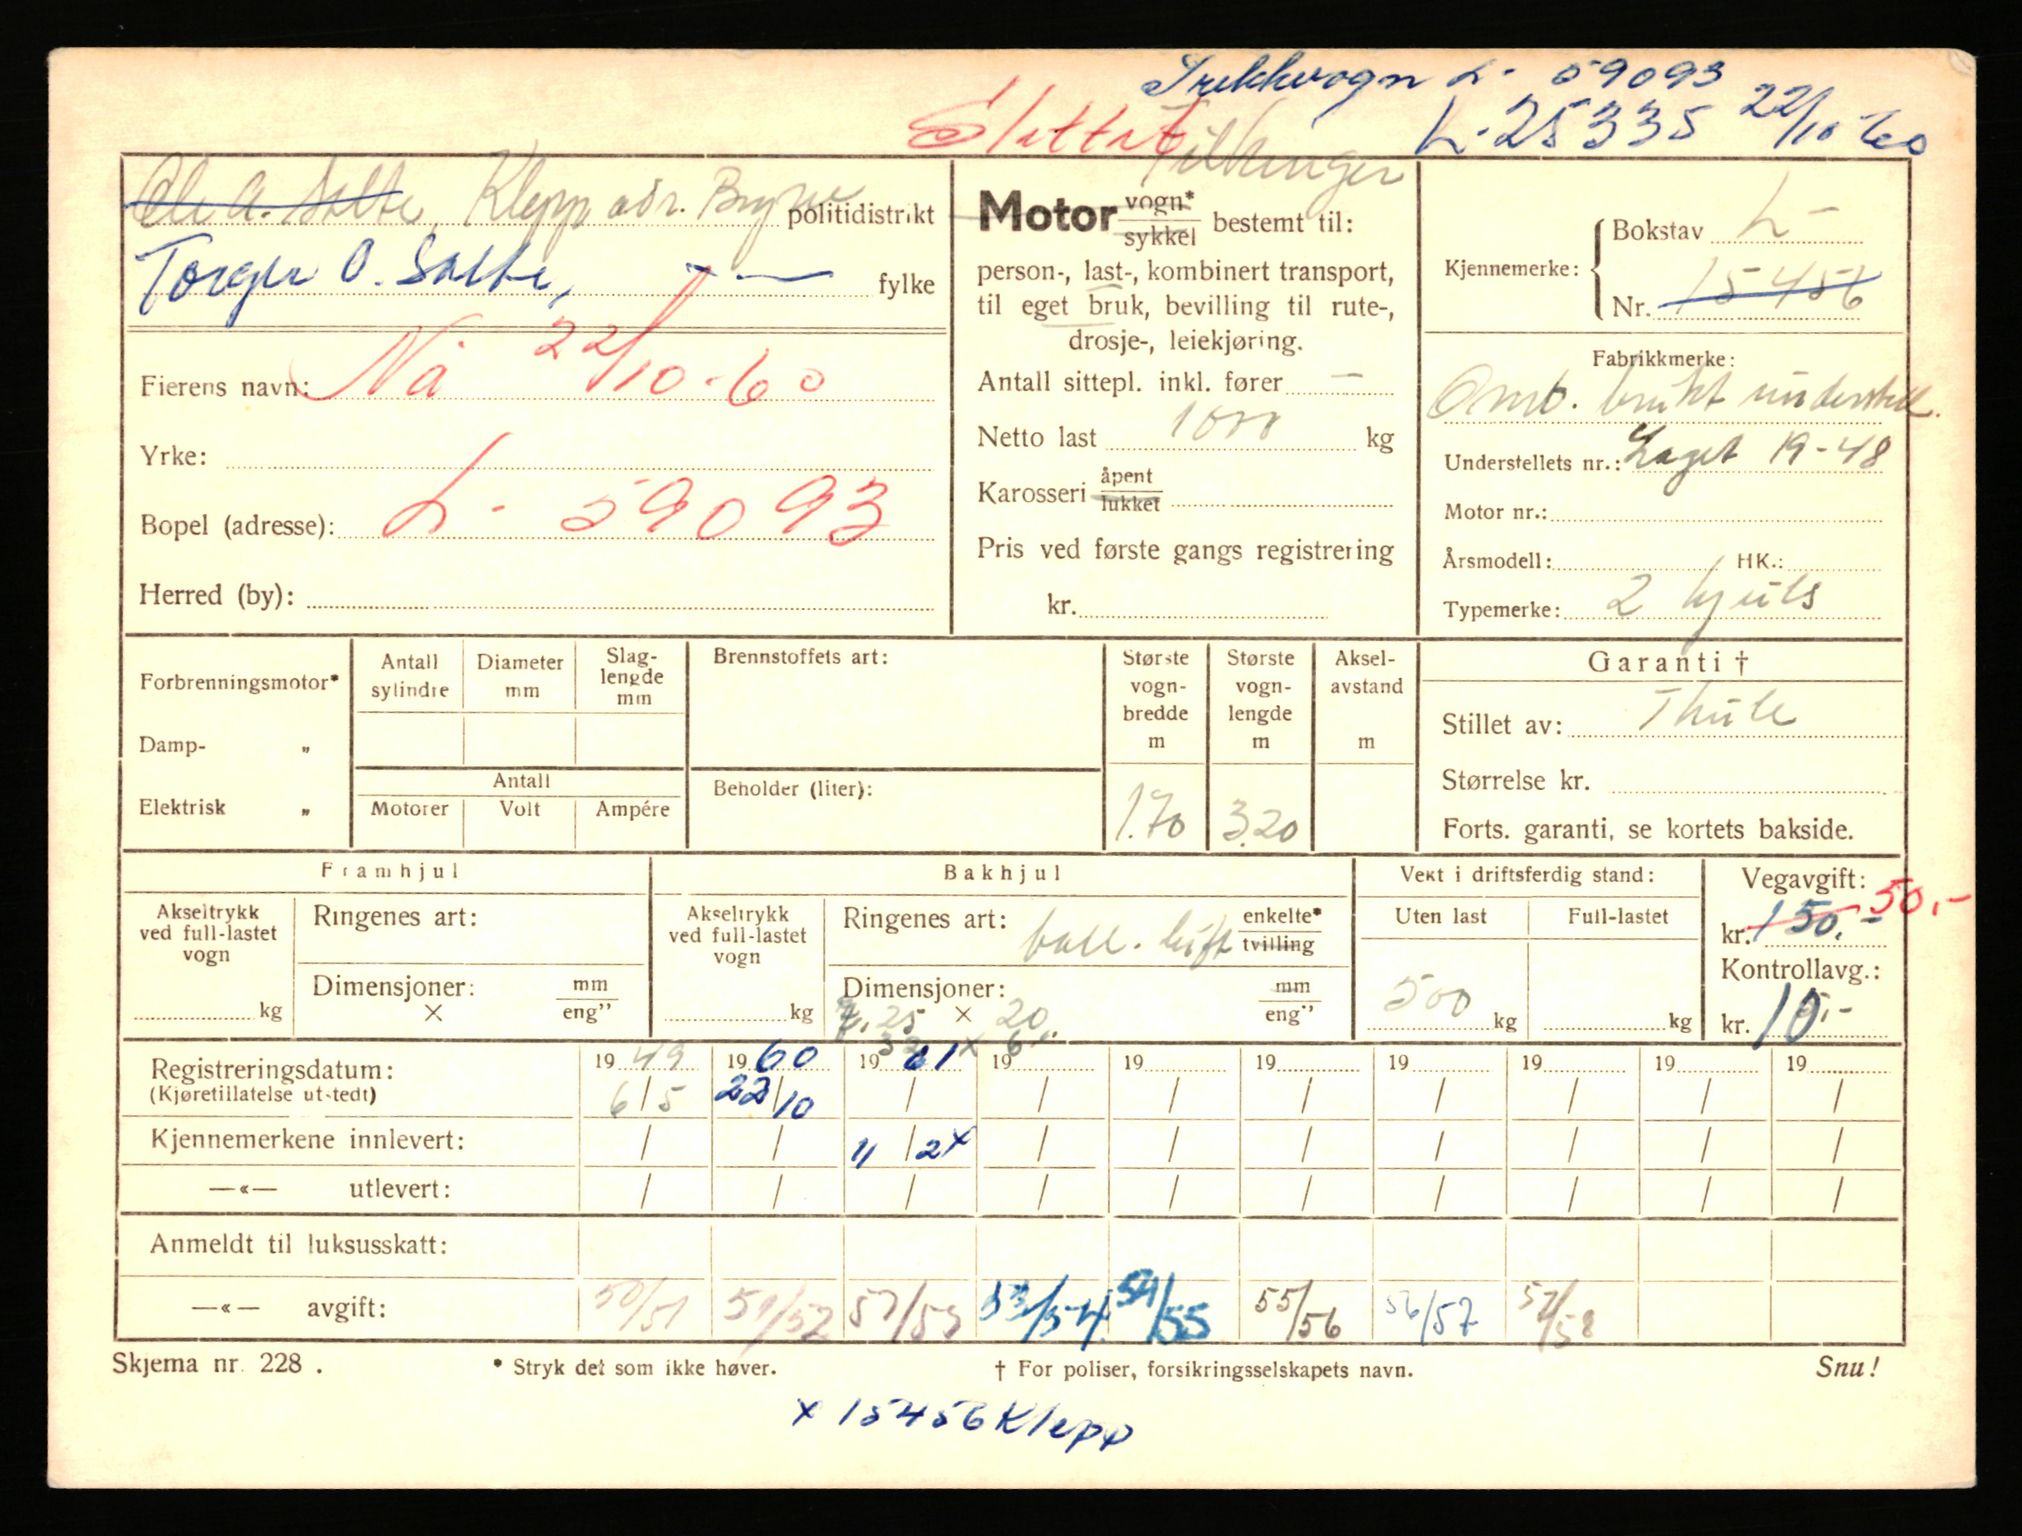 Trekkvogn L- 59093
Slettet
L-25335 22/10 60
Tilhenger
Ole A. Salte, Klepp adr. Bryne politidistrikt
Torger O. Salte, — " — fylke
Fierens navn: Nå 22/10-60
Yrke:
Bopel (adresse): L- 59093
Herred (by):
Motor vogn* sykkel bestemt til:
person-, last-, kombinert transport,
til eget bruk, bevilling til rute-,
drosje-, leiekjøring.
Antall sittepl. inkl. fører —
Netto last 1000 kg
Karosseri åpent lukket
Pris ved første gangs registrering
kr.
Kjennemerke: Bokstav L-
Nr. 15456
Fabrikkmerke:
Omb. brukt understell.
Understellets nr.: Laget 19-48
Motor nr.:
Årsmodell: HK.:
Typemerke: 2 hjuls
Forbrenningsmotor*
Damp- „
Elektrisk „
Antall sylindre
Diameter mm
Slag-lengde mm
Antall
Motorer Volt Ampére
Brennstoffets art:
Beholder (liter):
Største vogn-bredde m
1.70
Største vogn-lengde m
3.20
Aksel-avstand m
Garanti †
Stillet av: Thule
Størrelse kr.
Forts. garanti, se kortets bakside.
Framhjul
Akseltrykk ved full-lastet vogn
kg
Ringenes art:
Dimensjoner: mm
× eng"
Bakhjul
Akseltrykk ved full-lastet vogn
kg
Ringenes art: ball. luft enkelte* tvilling
Dimensjoner: mm
7.25 × 20 eng"
32 x 6"
Vekt i driftsferdig stand:
Uten last Full-lastet
500 kg kg
Vegavgift: 50,-
kr. 150.-
Kontrollavg.:
kr. 10.-
Registreringsdatum: 19 49 19 60 19 61 19 19 19 19 19 19 19
(Kjøretillatelse utstedt) 6/5 22/10 / / / / / / / /
Kjennemerkene innlevert: / / 11/2 x / / / / / / /
—«— utlevert: / / / / / / / / / /
Anmeldt til luksusskatt:
—«— avgift: 50/51 51/52 52/53 53/54 54/55 55/56 56/57 57/58
Skjema nr. 228 . * Stryk det som ikke høver. † For poliser, forsikringsselskapets navn. Snu!
x 15456 Klepp